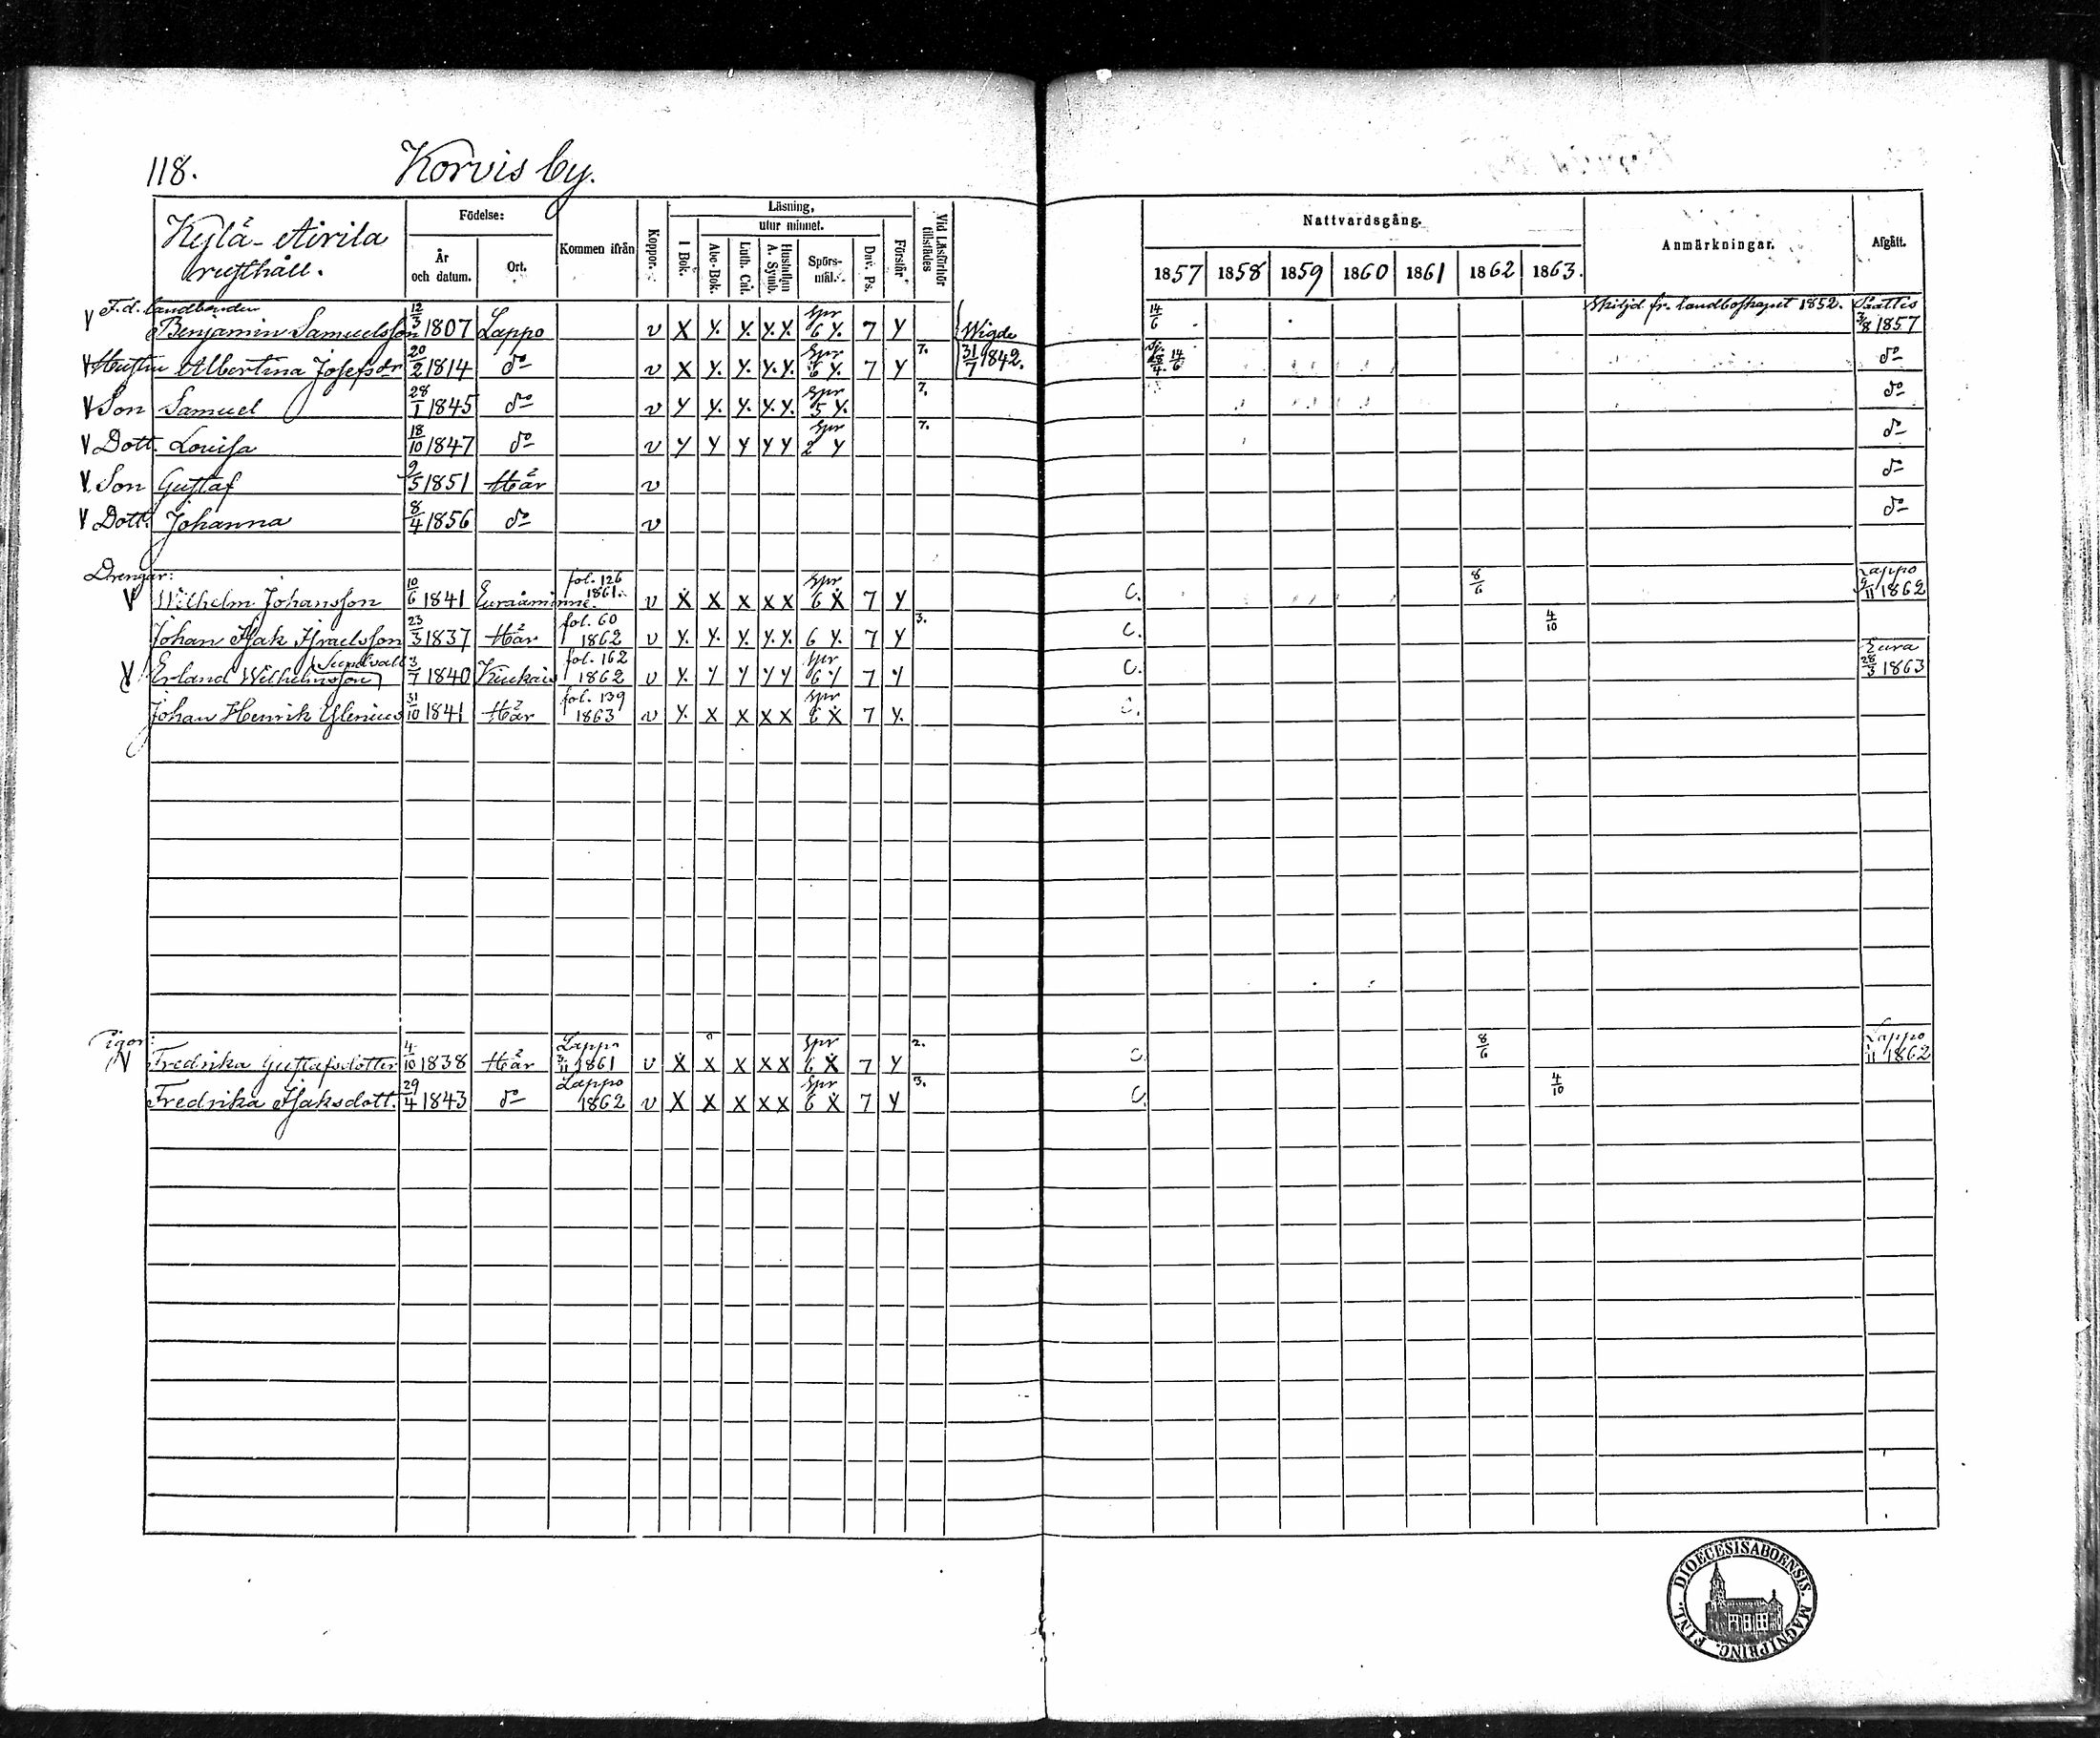 118. Korvis by.
Kylä-Airila
rusthåll.
Födelse:
År
och datum.
Ort.
Kommen ifrån
Koppor.
Läsning,
I Bok.
utur minnet.
Abc-Bok.
Luth. Cat.
Hustaflan
A. Symb.
Spörs-
mål.
Dav. Ps.
Förstår
Vid Läsförhör
tillstädes
Nattvardsgång.
1857 1858 1859 1860 1861 1862 1863.
Anmärkningar.
Afgått.
F.d. landbonden Spr 14/6 Skiljd fr. landboskapet 1852.
v Benjamin Samuelsson 12/3 1807 Lappo v X y. y. y. y. 6 y. 7 y Wigde 3/8 1857
v Hustru Albertina Josefsdr 20/2 1814 do v X y. y. y. y. Spr 6 y. 7 y 7. 31/7 1842. 28/4. 14/6 do
v Son Samuel 28/1 1845 do v y y. y. y. y. Spr 5 y. 7. do
v Dott. Lovisa 18/10 1847 do v y y y y y Spr 2 y 7. do
v. Son Gustaf 9/5 1851 Här v do
v Dott. Johanna 8/4 1856 do v do
Drengar: fol. 126 Spr Lappo
v Wilhelm Johansson 10/6 1841 Euraåminne. 1861. v X X X X X 6 X 7 y C. 8/6 9/11 1862
Johan Isak Israelsson 23/3 1837 Här fol. 60 1862 v y. y. y. y. y. 6 y. 7 y 3. C. 4/10
Sundvall Eura
v Erland Wilhelmsson 3/7 1840 Kiukais fol. 162 1862 v y. y y y y Spr 6 y 7 y C. 28/3 1863
Johan Henrik Glenius 31/10 1841 Här fol. 139 1863 v y. X X X X Spr 6 X 7 y. C.
Pigor: Lappo Spr Lappo
v Fredrika Gustafsdotter 4/10 1838 Här 3/11 1861 v X X X X X 6 X 7 y 2. C. 8/6 1/11 1862
Fredrika Isaksdott. 29/4 1843 do Lappo 1862 v X X X X X Spr 6 X 7 y 3. C. 4/10
DIOECESIS ABOENSIS. MAGNI PRINC. FINL.